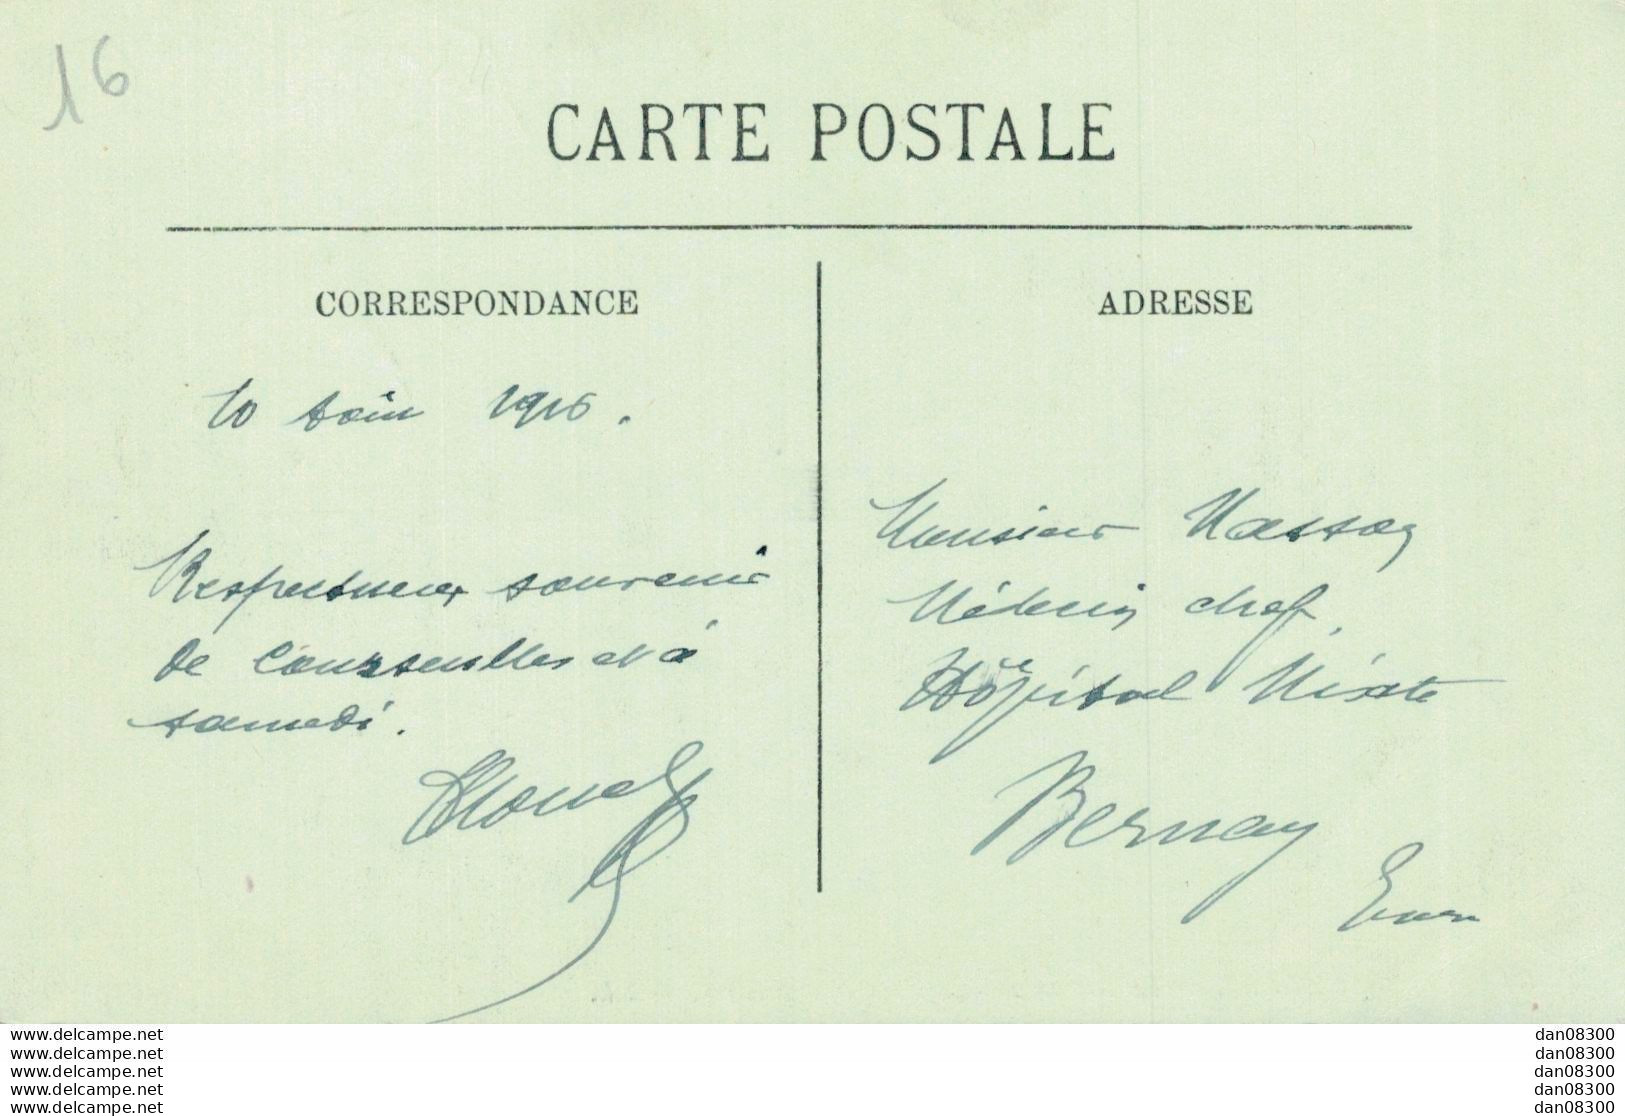 16
CARTE POSTALE
CORRESPONDANCE
10 1916.
Respectueux souvenir
de Courseulles et à
samedi.
ADRESSE
Monsieur
Médecin chef
Hôpital Mixte
Bernay
Eure
www.delcampe.net
www.delcampe.net
www.delcampe.net
www.delcampe.net
www.delcampe.net
dan08300
dan08300
dan08300
dan08300
dan08300